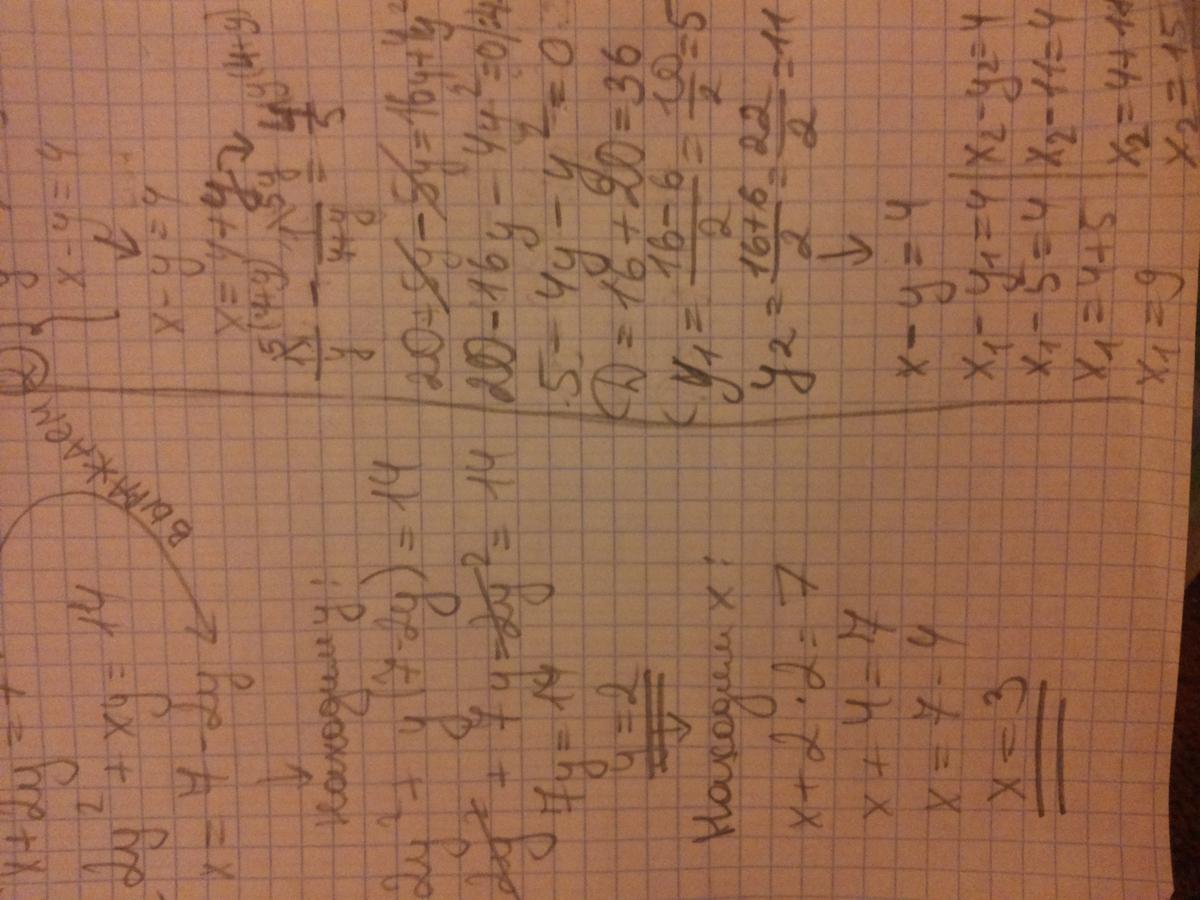 x + 2y = 7
2y² + xy = 14
выражаем
x = 7 - 2y
↓
Находим y:
2y² + y(7-2y) = 14
2y² + 7y - 2y² = 14
7y = 14
y = 2
↓
Находим x:
x + 2·2 = 7
x + 4 = 7
x = 7 - 4
x = 3
2)
x - y = 4
x - y = 4
x = y + 4
20 + 5y - 5y = 16y + 4y²
20 - 16y - 4y² = 0
5 - 4y - y² = 0
D = 16 + 20 = 36
y₁ = (16-6)/2 = 10/2 = 5
y₂ = (16+6)/2 = 22/2 = 11
↓
x - y = 4
x₁ - y₁ = 4 | x₂ - y₂ = 4
x₁ - 5 = 4 | x₂ - 11 = 4
x₁ = 4 + 5 | x₂ = 4 + 11
x₁ = 9 | x₂ = 15